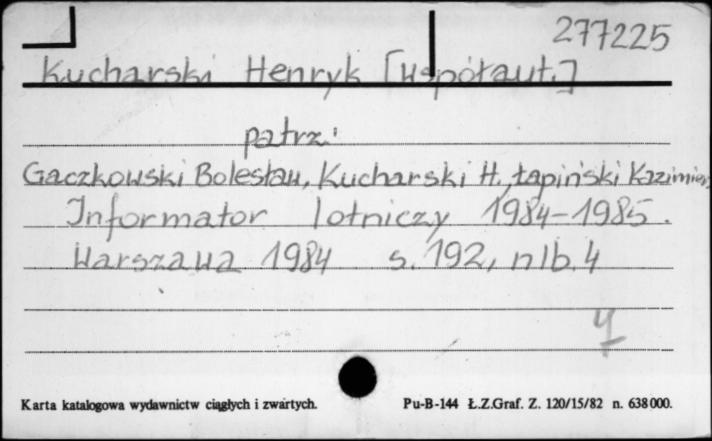 277225
Kucharski Henryk [współaut.]
patrz:
Gaczkowski Bolesław, Kucharski H., Łapiński Kazimierz
Informator lotniczy 1984-1985.
Warszawa 1984 s. 192, nlb. 4
4
Karta katalogowa wydawnictw ciągłych i zwartych. Pu-B-144 Ł.Z.Graf. Z. 120/15/82 n. 638000.